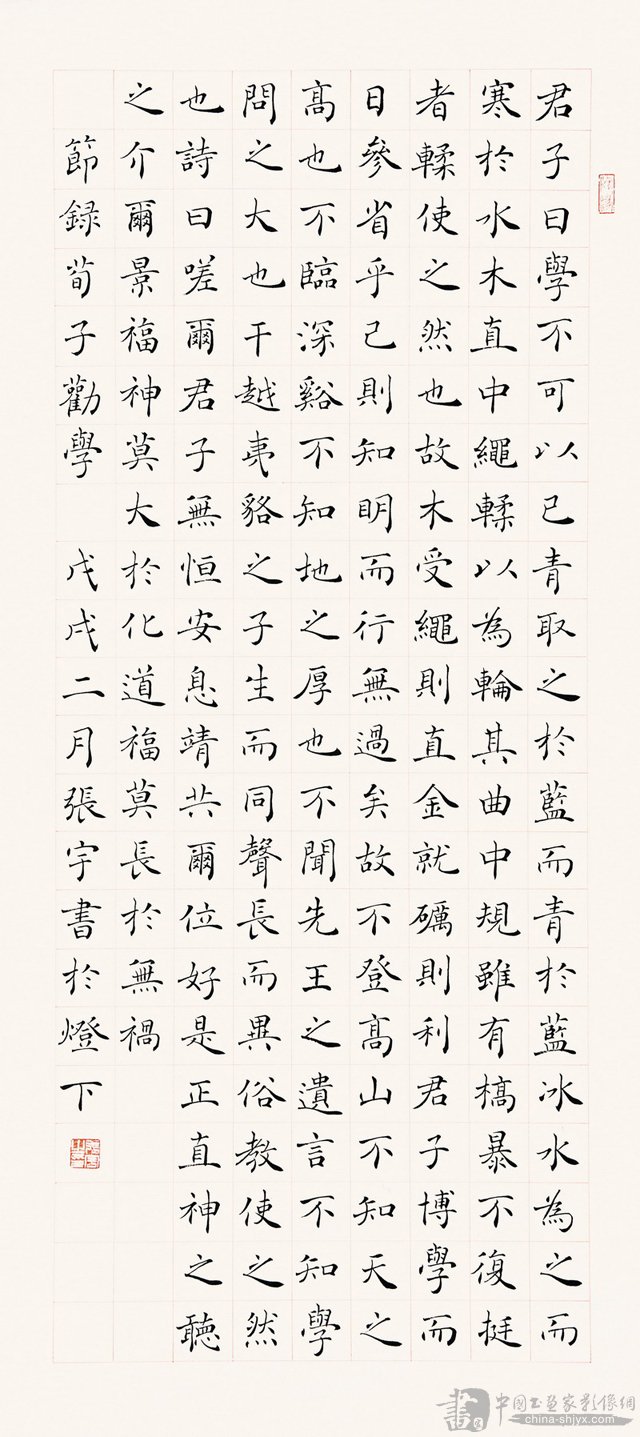 君子曰學不可以已青取之於藍而青於藍冰水為之而
寒於水木直中繩輮以為輪其曲中規雖有槁暴不復挺
者輮使之然也故木受繩則直金就礪則利君子博學而
日參省乎己則知明而行無過矣故不登髙山不知天之
髙也不臨深谿不知地之厚也不聞先王之遺言不知學
問之大也干越夷貉之子生而同聲長而異俗教使之然
也詩曰嗟爾君子無恒安息靖共爾位好是正直神之聽
之介爾景福神莫大於化道福莫長於無禍
節録荀子勸學 戊戌二月張宇書於燈下
中國书画家影像網
china-shjyx.com